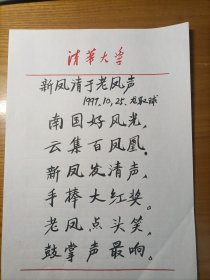 清华大学
新凤清于老凤声
1999.10.25.
南国好风光,
云集百凤凰。
新凤发清声,
手捧大红奖。
老凤点头笑,
鼓掌声最响。